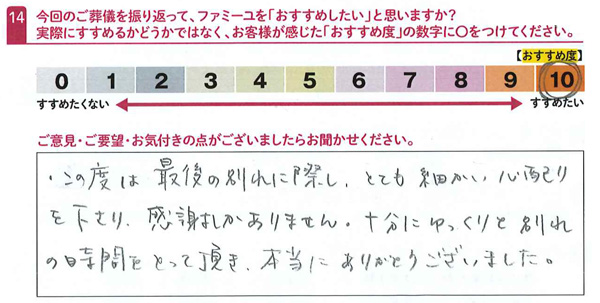 14 今回のご葬儀を振り返って、ファミーユを「おすすめしたい」と思いますか?
実際にすすめるかどうかではなく、お客様が感じた「おすすめ度」の数字に○をつけてください。
【おすすめ度】
0 1 2 3 4 5 6 7 8 9 10
すすめたくない すすめたい
ご意見・ご要望・お気付きの点がございましたらお聞かせください。
・この度は最後の別れに際し、とても細かい心配り
を下さり、感謝しかありません。十分にゆっくりと別れ
の時間をとって頂き、本当にありがとうございました。